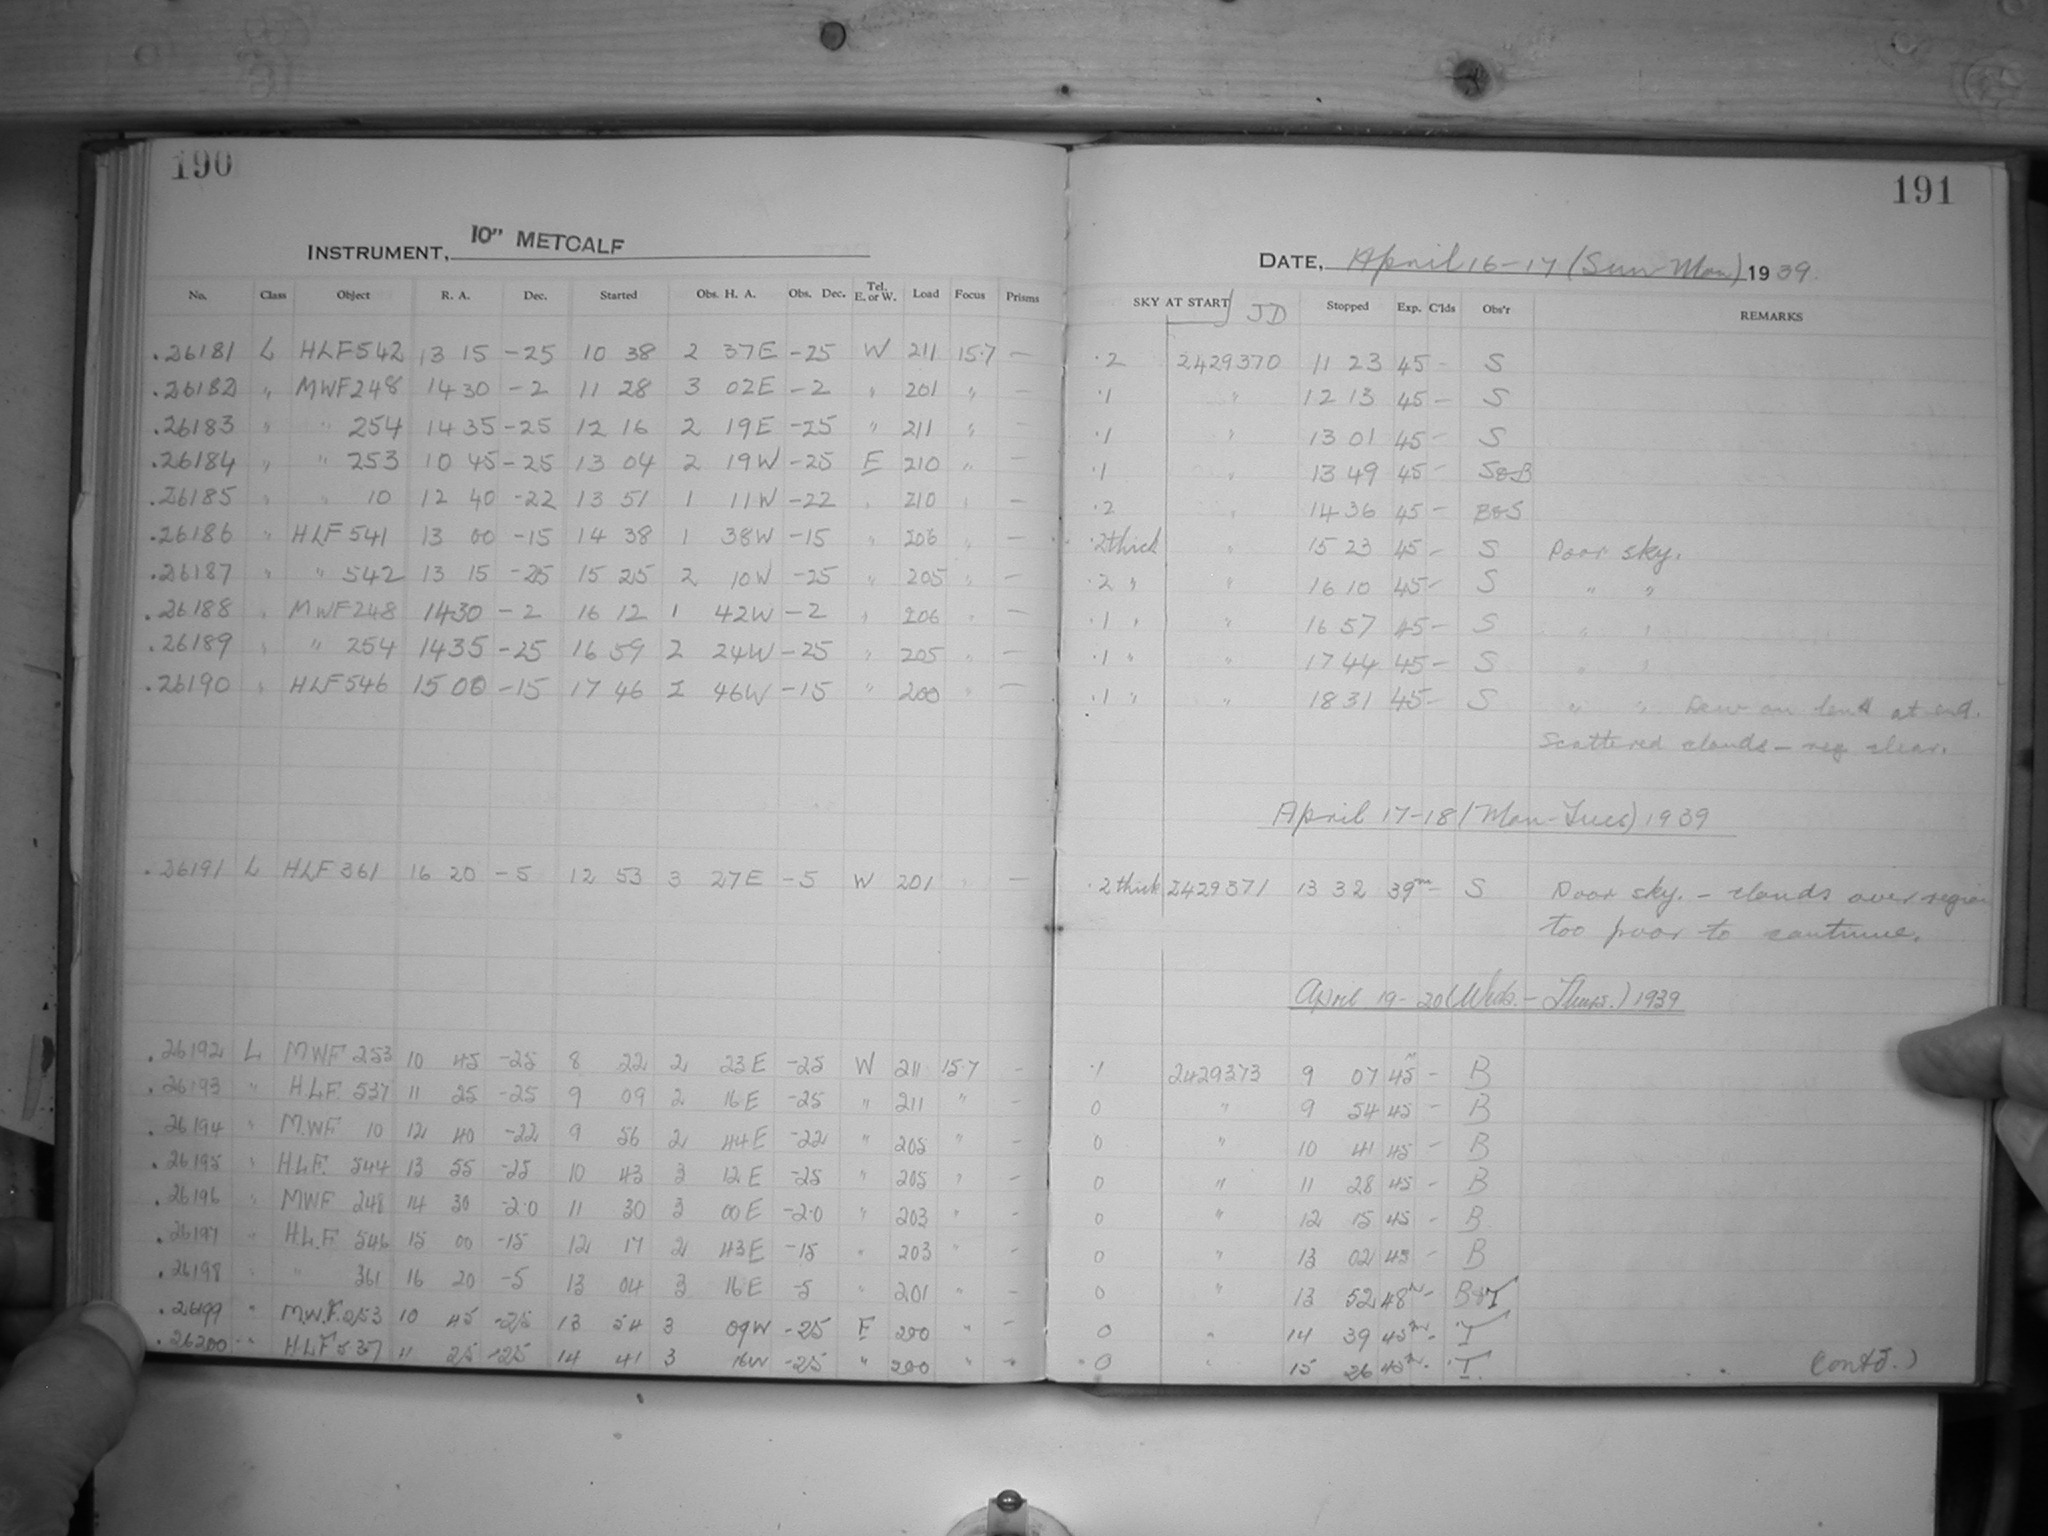 190
INSTRUMENT, 10" METCALF
No. Class Object R. A. Dec. Started Obs. H. A. Obs. Dec. Tel. E. or W. Load Focus Prisms
.26181 L HLF 542 13 15 -25 10 38 2 37E -25 W 211 15.7 —
.26182 " MWF 248 14 30 -2 11 28 3 02E -2 " 201 " —
.26183 " " 254 14 35 -25 12 16 2 19E -25 " 211 " —
.26184 " " 253 10 45 -25 13 04 2 19W -25 E 210 " —
.26185 " " 10 12 40 -22 13 51 1 11W -22 " 210 " —
.26186 " HLF 541 13 00 -15 14 38 1 38W -15 " 206 " —
.26187 " " 542 13 15 -25 15 25 2 10W -25 " 205 " —
.26188 " MWF 248 14 30 -2 16 12 1 42W -2 " 206 " —
.26189 " " 254 14 35 -25 16 59 2 24W -25 " 205 " —
.26190 " HLF 546 15 00 -15 17 46 2 46W -15 " 200 " —
.26191 L HLF 361 16 20 -5 12 53 3 27E -5 W 201 " —
.26192 L MWF 253 10 45 -25 8 22 2 23E -25 W 211 15.7 -
.26193 " HLF 537 11 25 -25 9 09 2 16E -25 " 211 " -
.26194 " MWF 10 12 40 -22 9 56 2 44E -22 " 205 " -
.26195 " HLF 544 13 55 -25 10 43 3 12E -25 " 205 " -
.26196 " MWF 248 14 30 -2.0 11 30 3 00E -2.0 " 203 " -
.26197 " H.L.F. 546 15 00 -15 12 17 2 43E -15 " 203 " -
.26198 " " 361 16 20 -5 13 04 3 16E -5 " 201 " -
.26199 " M.W.F. 253 10 45 -25 13 54 3 09W -25 E 200 " -
.26200 " HLF 537 11 25 -25 14 41 3 16W -25 " 200 " -
191
DATE, April 16-17 (Sun-Mon) 1939.
SKY AT START JD Stopped Exp. C'lds Obs'r REMARKS
.2 2429370 11 23 45 - S
.1 " 12 13 45 - S
.1 " 13 01 45 - S
.1 " 13 49 45 - S&B
.2 " 14 36 45 - B&S
.2 thick " 15 23 45 - S Poor sky.
.2 " " 16 10 45 - S " "
.1 " " 16 57 45 - S " "
.1 " " 17 44 45 - S " "
.1 " " 18 31 45 - S " " Dew on lens at end.
Scattered clouds - reg clear.
April 17-18 (Mon-Tues) 1939
.2 thick 2429371 13 32 39m - S Poor sky. - clouds over region
too poor to continue.
April 19-20 (Weds. - Thurs.) 1939
.1 2429373 9 07 45m - B
0 " 9 54 45 - B
0 " 10 41 45 - B
0 " 11 28 45 - B
0 " 12 15 45 - B
0 " 13 02 45 - B
0 " 13 52 48m - B&T
0 " 14 39 45m - T
0 " 15 26 45m - T
(Contd.)